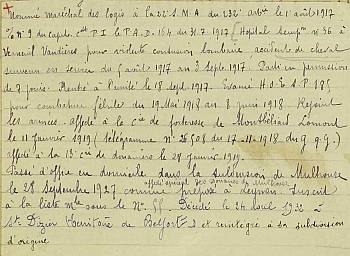 Nommé maréchal des logis à la 22e S.M.A du 232e arti le 1 août 1917
No 3 du capte. P.I. le P.A.D. 164 du 31.7.1917 (Hôpital No 36 à
Verneuil Vandières pour violente contusion lombaire accidente de cheval
survenu en service du 5 août 1917 au 3 sept. 1917. Parti en permission
de 7 jours. Rentré à l'unité le 18 sept. 1917. Evacué H.O.E. S.P. 185
pour courbature fébrile du 19 Mai 1918 au 8 juin 1918. Rejoint
les armées. affecté à la Cie de forteresse de Montbéliard Lomont
le 11 janvier 1919 (télégramme No 26508 du 17-11-1918 du G.Q.G.)
affecté à la 15e Cie de douaniers le 28 janvier 1919.
Passé d'office en domicile dans la subdivision de Mulhouse
affecté spécial des Douanes de Mulhouse
le 28 septembre 1927 comme préposé à depuis. Inscrit
à la liste mle sous le No 55 Décédé le 24 avril 1932 à
St Dizier (territoire de Belfort) et réintégré à sa subdivision
d'origine